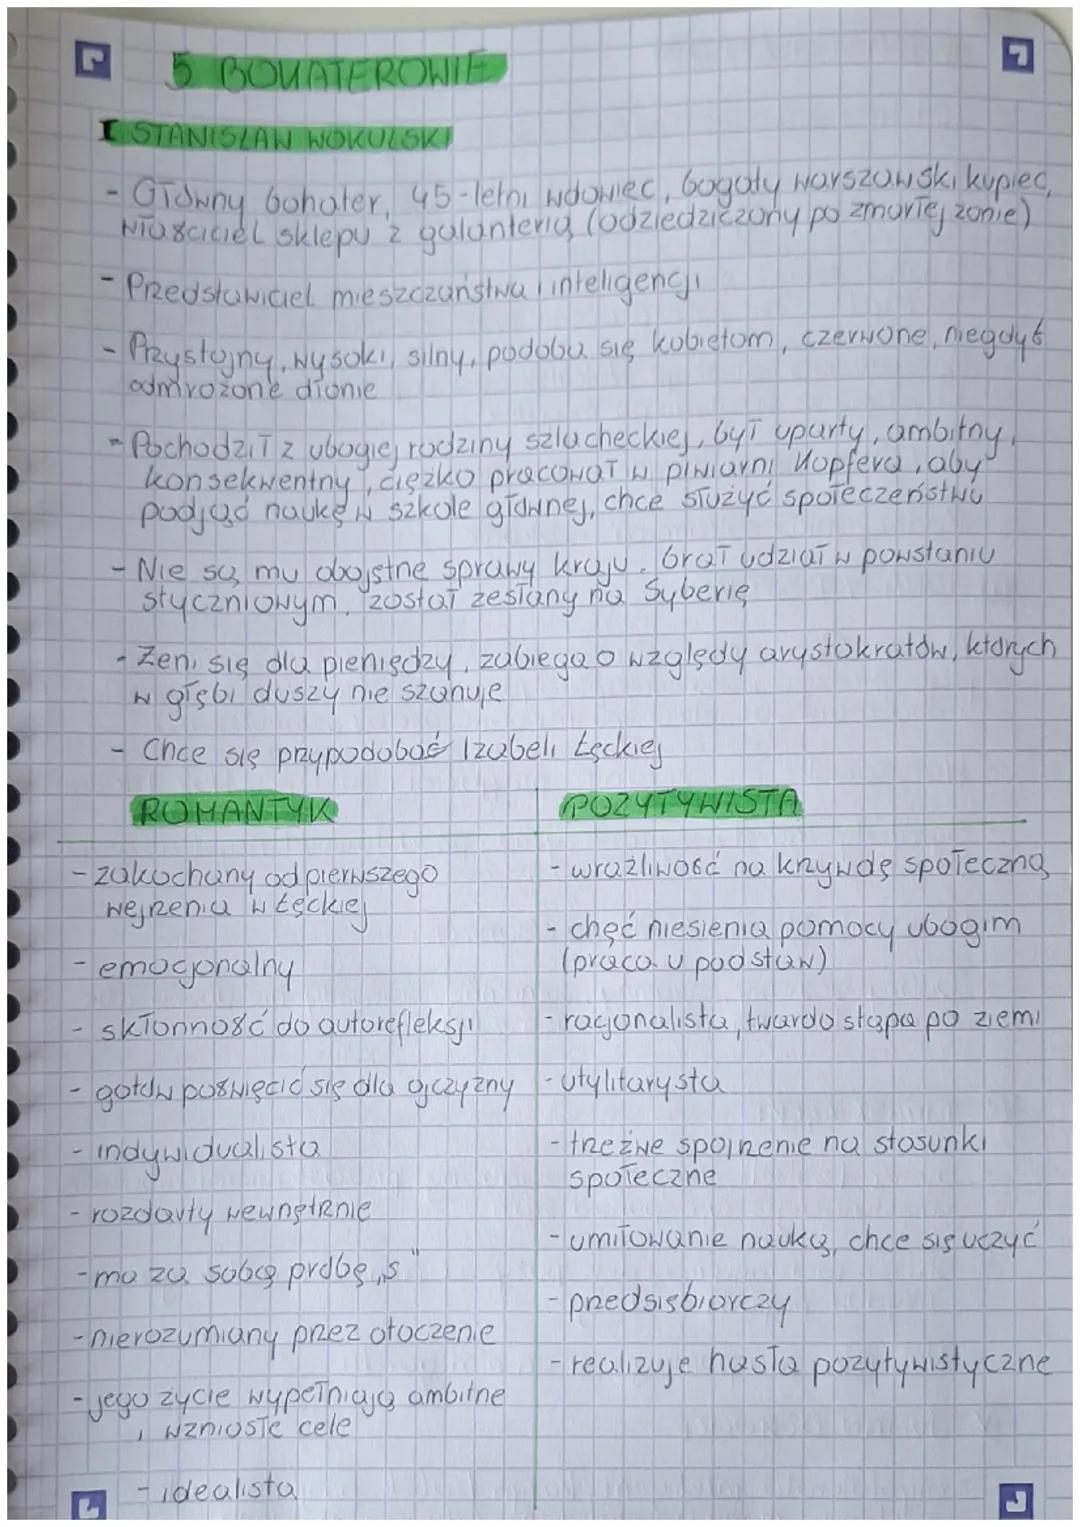 5 BOHATEROWIE
I STANISŁAW WOKULSKI
- Główny bohater, 45-letni wdowiec, bogaty warszawski kupiec,
właściciel sklepu z galanterią (odziedziczony po zmarłej żonie)
- Przedstawiciel mieszczaństwa i inteligencji
- Przystojny, wysoki, silny, podoba się kobietom, czerwone, niegdyś
odmrożone dłonie
- Pochodził z ubogiej rodziny szlacheckiej, był uparty, ambitny,
konsekwentny, ciężko pracował w piwiarni Hopfera, aby
podjąć naukę w szkole głównej, chce służyć społeczeństwu
- Nie są mu obojętne sprawy kraju. brał udział w powstaniu
styczniowym, został zesłany na Syberię
- Żeni się dla pieniędzy, zabiega o względy arystokratów, których
w głębi duszy nie szanuje
- Chce się przypodobać Izabeli Łęckiej
ROMANTYK
- zakochany od pierwszego
wejrzenia w Łęckiej
- emocjonalny
- skłonność do autorefleksji
- gotów poświęcić się dla ojczyzny
- indywidualista
- rozdarty wewnętrznie
- ma za sobą próbę „s"
- nierozumiany przez otoczenie
- jego życie wypełniają ambitne
i wzniosłe cele
- idealista
POZYTYWISTA
- wrażliwość na krzywdę społeczną
- chęć niesienia pomocy ubogim
(praca u podstaw)
- racjonalista, twardo stąpa po ziemi
- utylitarysta
- trzeźwe spojrzenie na stosunki
społeczne
- umiłowanie nauką, chce się uczyć
- przedsiębiorczy
- realizuje hasła pozytywistyczne